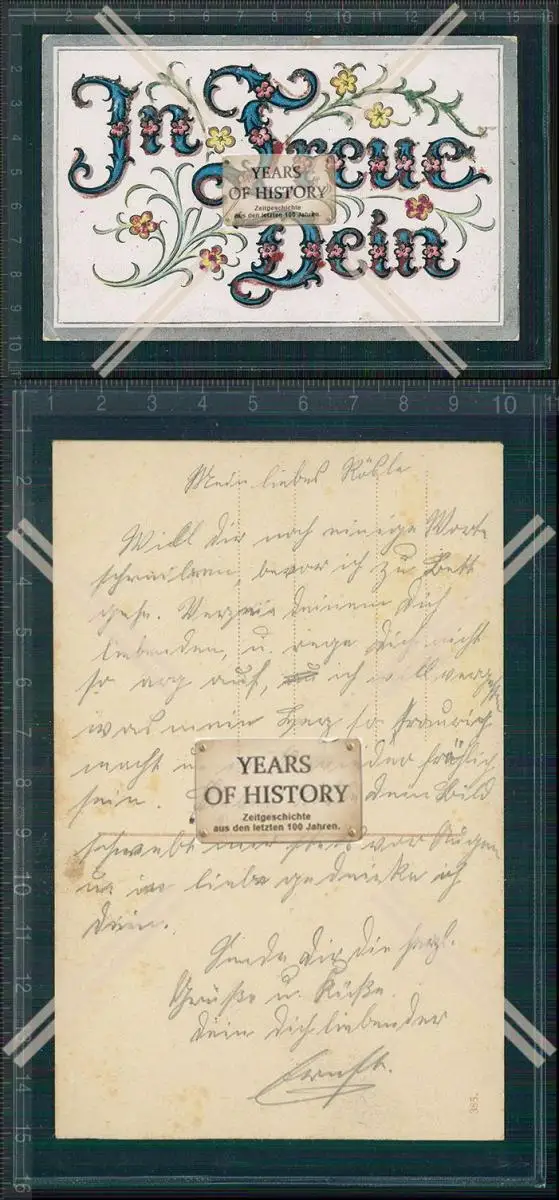 In Treue
Dein
YEARS
OF HISTORY
Zeitgeschichte
aus den letzten 100 Jahren.
Mein liebes Rösle
Will dir noch einige Worte
schreiben, bevor ich zu Bett
gehe. Verzeih deinem dich
liebenden, u. rege dich nicht
so arg auf, ich will vergessen
was mein Herz so traurig
macht u. wieder fröhlich
sein. dein Bild
schwebt mir stets vor Augen
u. in Liebe gedenke ich
dein.
Sende dir die herzl.
Grüße u. Küße.
dein dich liebender
Ernst.
YEARS
OF HISTORY
Zeitgeschichte
aus den letzten 100 Jahren.
385.